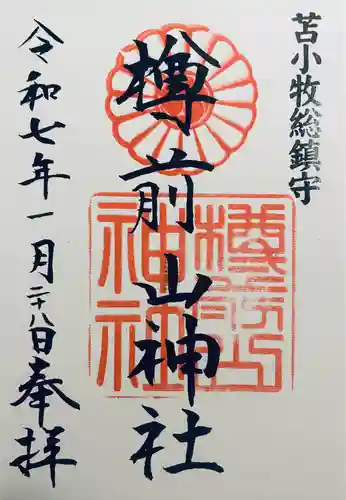 苫小牧総鎮守
樽前山神社
樽前山神社
令和七年一月二十八日奉拝